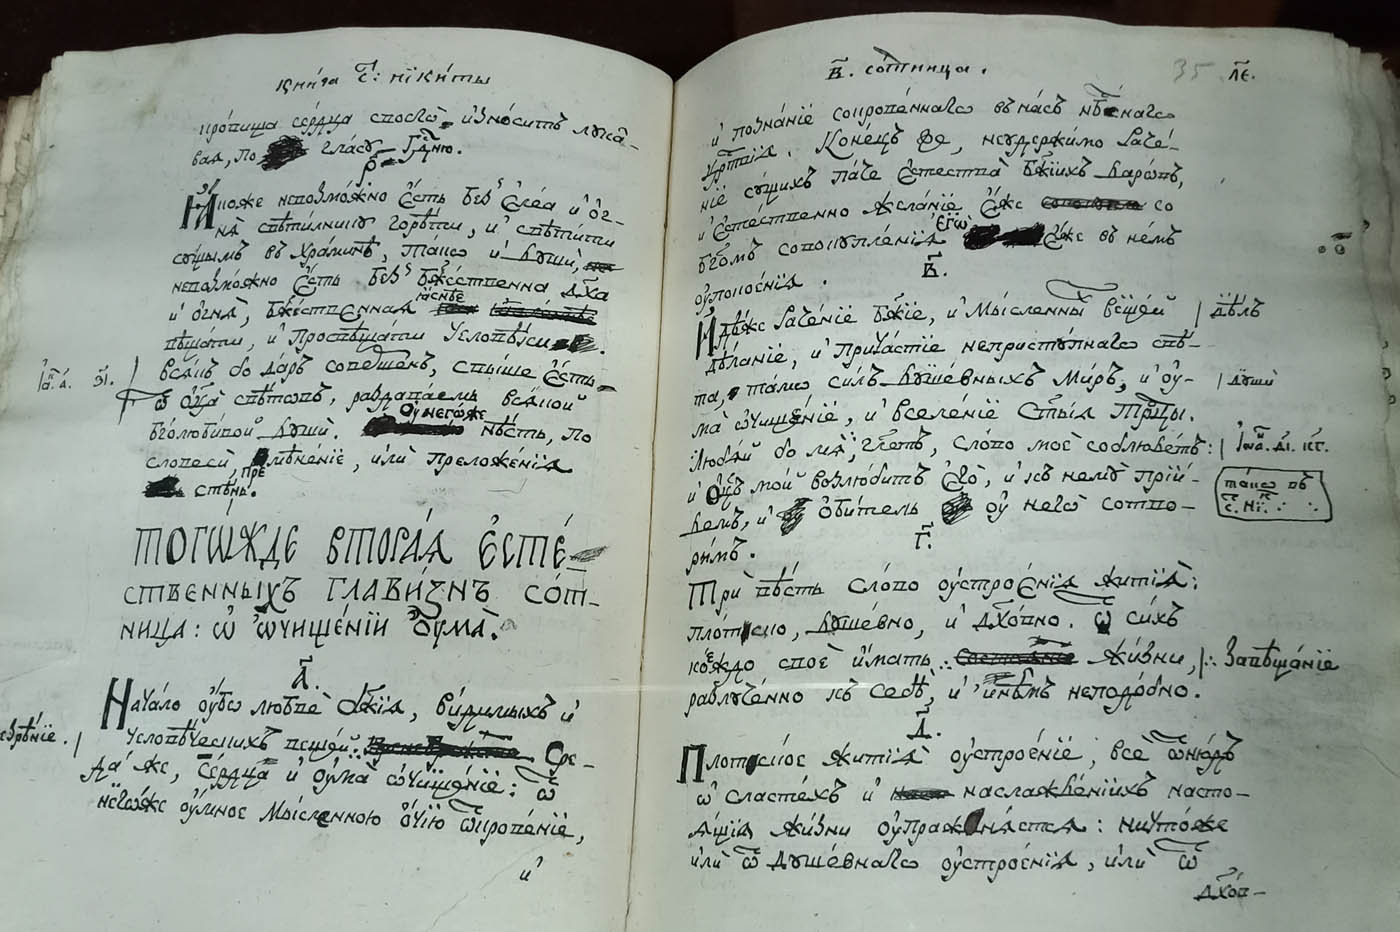 книга с҃: никиты
сердца износитъ лука-
вая, по гласу гдню.
р҃
Ниоже невозможно єсть без єлеа и ог-
ня свѣтилнику горѣти, и свѣтити
сущымъ въ храминѣ, такω и души,
невозможно єсть без бжественна дх҃а
и огня, бжественная яснѣе
вѣщати, и просвѣщати человѣки.
всякъ бо даръ совершенъ, свыше єсть
ѿ оц҃а свѣтωвъ, раздаваемь всякой
бголюбивой души. оу негоже нѣсть, по
словеси, премѣнение, или преложения
стѣнь.
Іак. а҃. з҃і.
ТОГѠЖДЕ ВТОРАЯ ЄСТЕ-
СТВЕННЫХЪ ГЛАВИЗНЪ СОТ-
НИЦА: Ѡ ѠЧИЩЕНІИ ОУМА.
а҃.
Начало оубо любве бж҃ія, видимыхъ и
человѣческихъ вещей: Сре-
да же, сердца и оума ωчищеніе: ѿ
негωже оумное мысленною очію ѿкровеніе,
и
зрѣніе.
в҃. сотница. 35 л҃є.
и познаніе сокровеннагω въ насъ нб҃снагω
црт҃вія. Конецъ же, неудержимо раче-
ніе сущихъ паче єстества бж҃іихъ даровъ,
и єстественно желаніе єже со
бг҃омъ совокупленія єгω єже въ немъ
оупокоєнія.
в҃.
Идѣже раченіє бж҃іе, и мысленны вещей | дѣлъ
дѣланіе, и причастіе неприступнагω свѣ-
та, такω силъ душевныхъ миръ, и оу- | души
ма ωчищеніе, и вселеніе ст҃ыя трⷪ҇цы.
Любяй бо мя, гл҃етъ, слово мое соблюдетъ: | Іωа. д҃і. к҃г.
и оц҃ъ мой возлюбитъ єго, и къ нему прій-
демъ, и обитель оу негω сотво-
римъ.
такω въ
г҃.
Три вѣсть слово оустроєнія житія:
плотско, душевно, и дх҃овно. ѿ сихъ
коеждо своє имать жизни, |: Завѣщаніе
разлученно къ себѣ, и инѣмъ неподобно.
д҃.
Плотскоє житія оустроєніе, все ѿнюдъ
ω сластехъ и наслажденіихъ насто-
ящія жизни оупражняется: ничтоже
или ѿ душевнагω оустроєнія, или ѿ
дх҃ов-